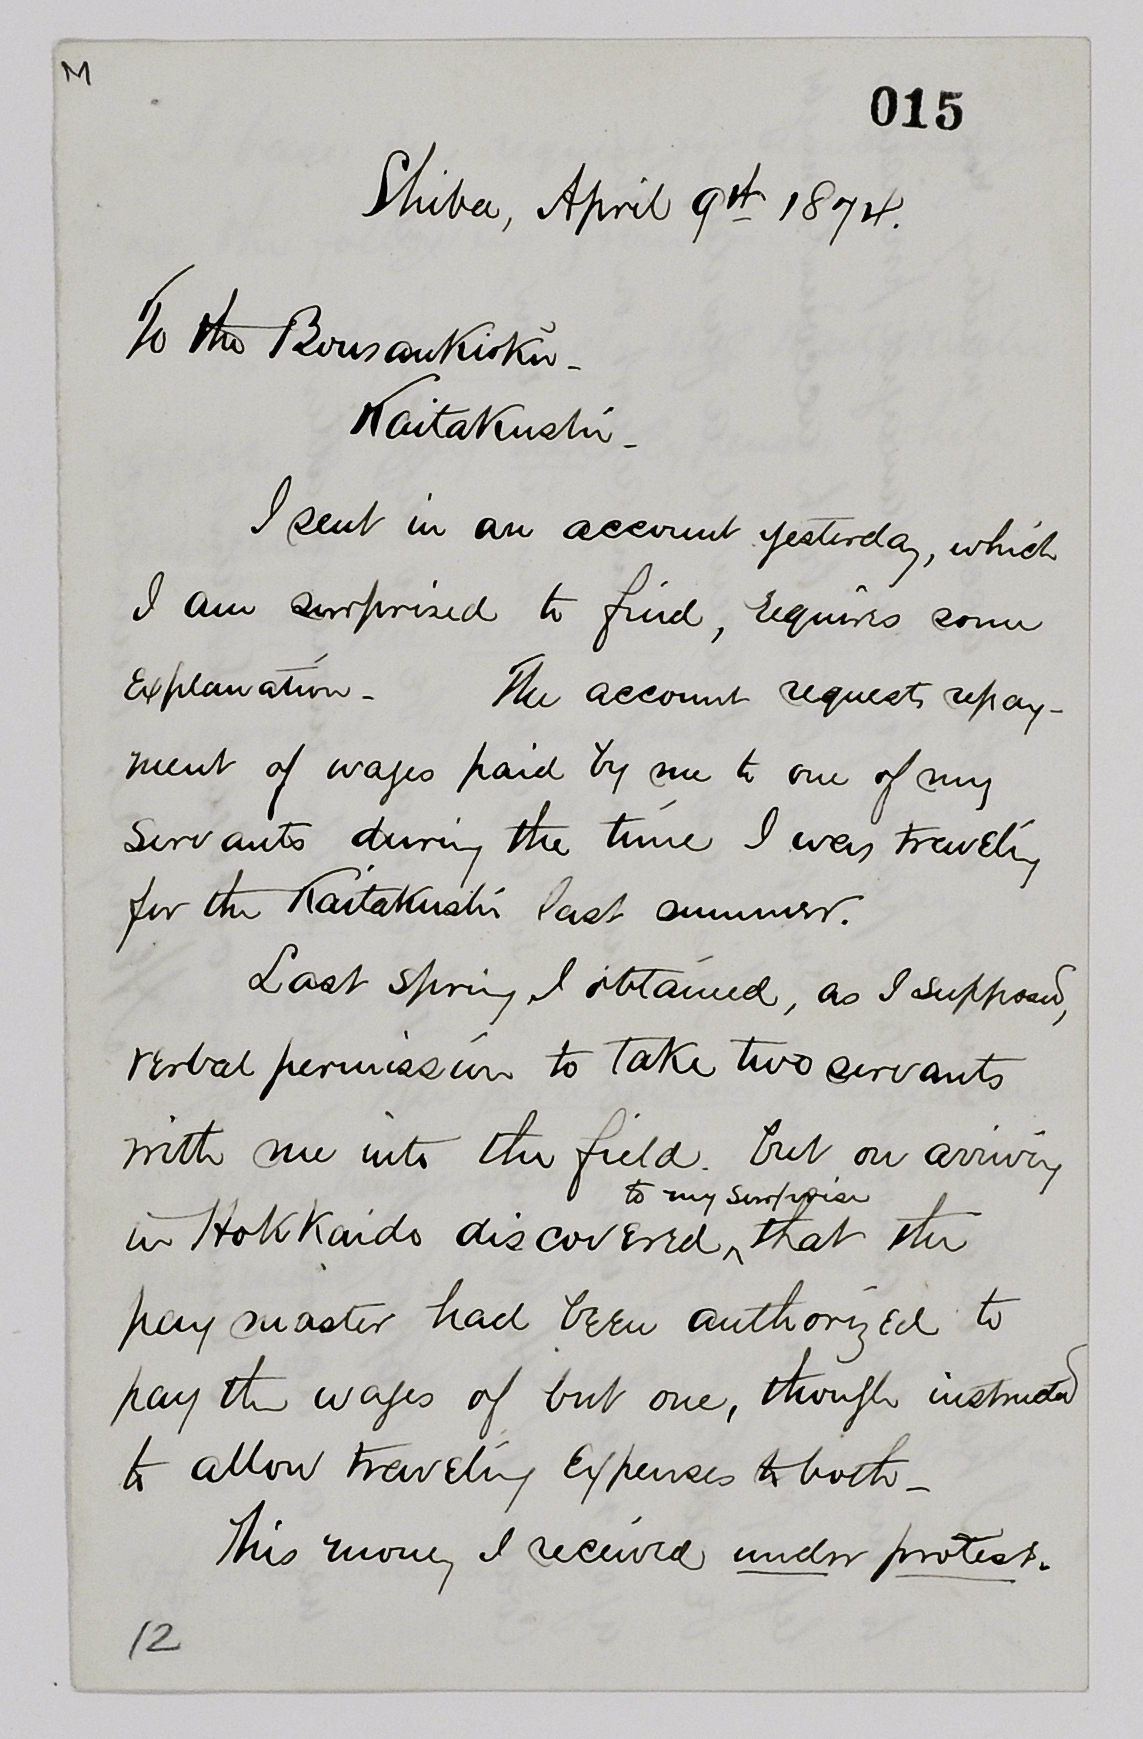 M
015
Shiba, April 9th 1874.
To the Bousankioku -
Kaitakushi -
I sent in an account yesterday, which
I am surprised to find, requires some
explanation - The account requests repay-
ment of wages paid by me to one of my
servants during the time I was traveling
for the Kaitakushi last summer.
Last spring I obtained, as I supposed,
verbal permission to take two servants
with me into the field. but on arriving
to my surprise
in Hokkaido discovered, ^ that the
pay master had been authorized to
pay the wages of but one, though instructed
to allow traveling expenses to both -
This money I received under protest.
12